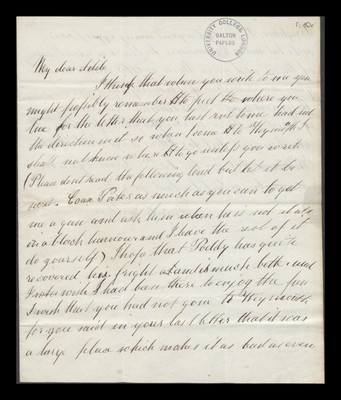 UNIVERSITY COLLEGE LONDON
GALTON
PAPERS
My dear Adèle
I think that when you write to me you
might possibly remember to put where you
live for the letter that you last sent home had not
the direction in it so when I come to Weymouth I
shall not know where to go unless you write
(Please don't read the following loud but let it be
your. Coax Pater as much as you can to get
me a gun and ask him when he is not at all
in a black humour and I have the rest of it
do yourself) I hope that Polly has quite
recovered her fright and is much better and
I wish I had been there to enjoy the fun
I wish that you had not gone to Weymouth
for you said in your last letter that it was
a large place which makes it as bad as even